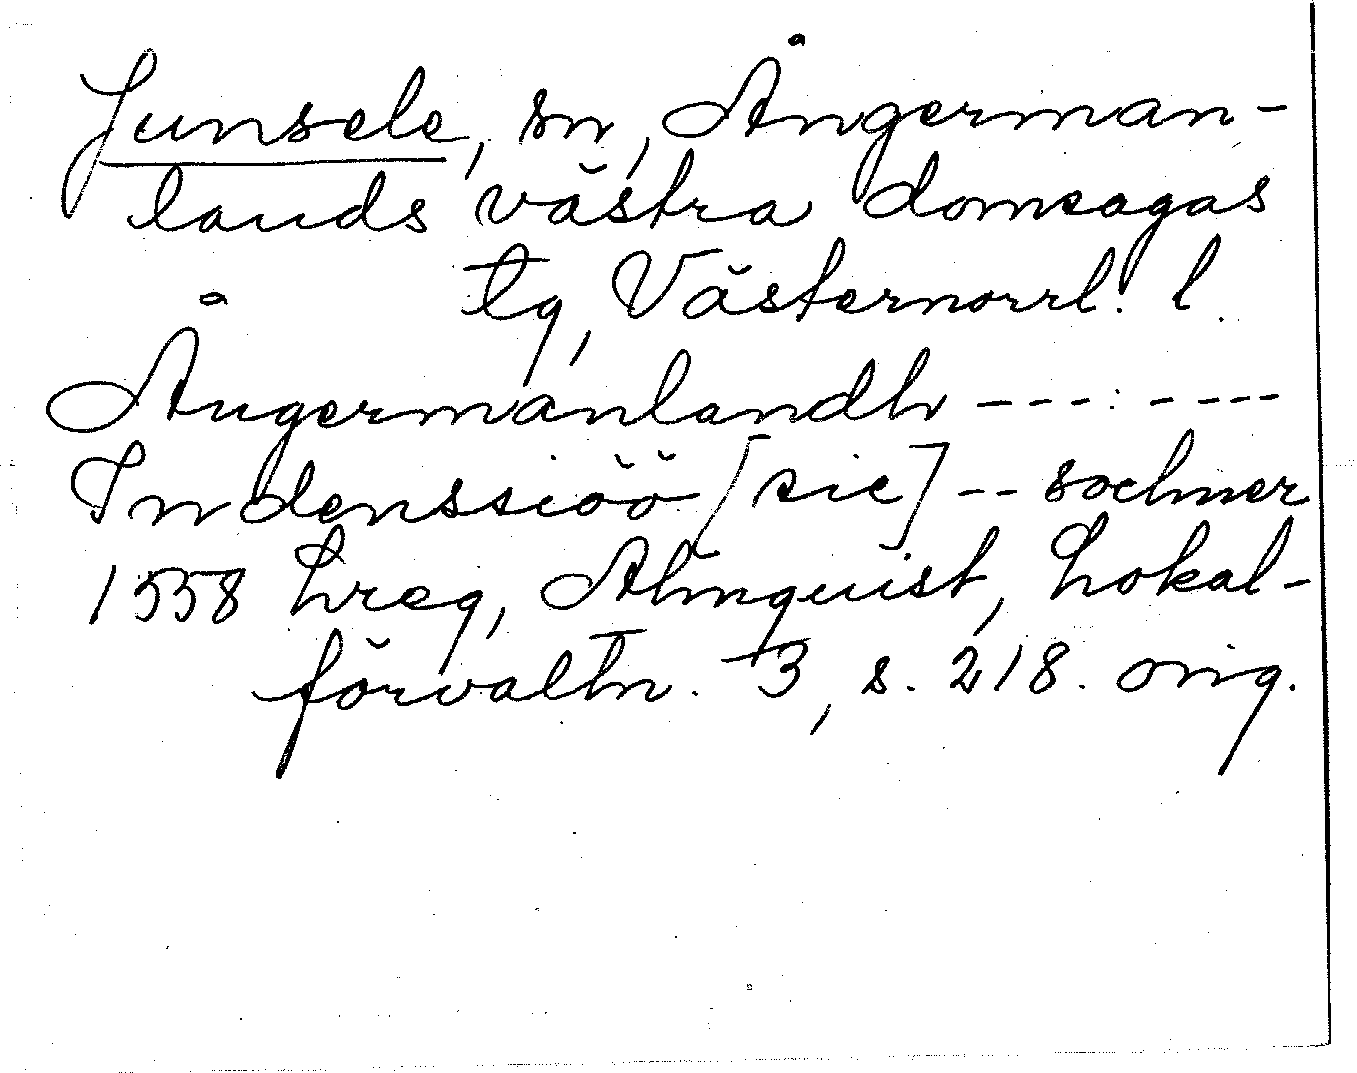 Junsele, sn, Ångerman-
lands västra domsagas
tg, Västernorrl. l.
Ångermanlandh ---:----
Indenssiöö [sic] -- sochner
1558 hreg, Almquist, Lokal-
förvaltn. 3, s. 218. orig.